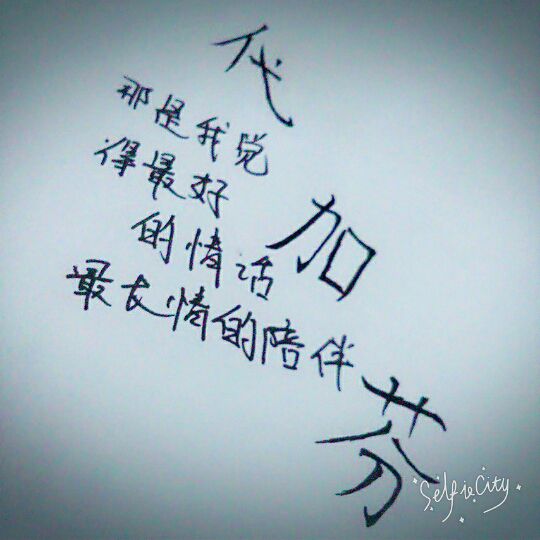 代加芬
那是我觉
得最好
的情话
最友情的陪伴
SelfieCity